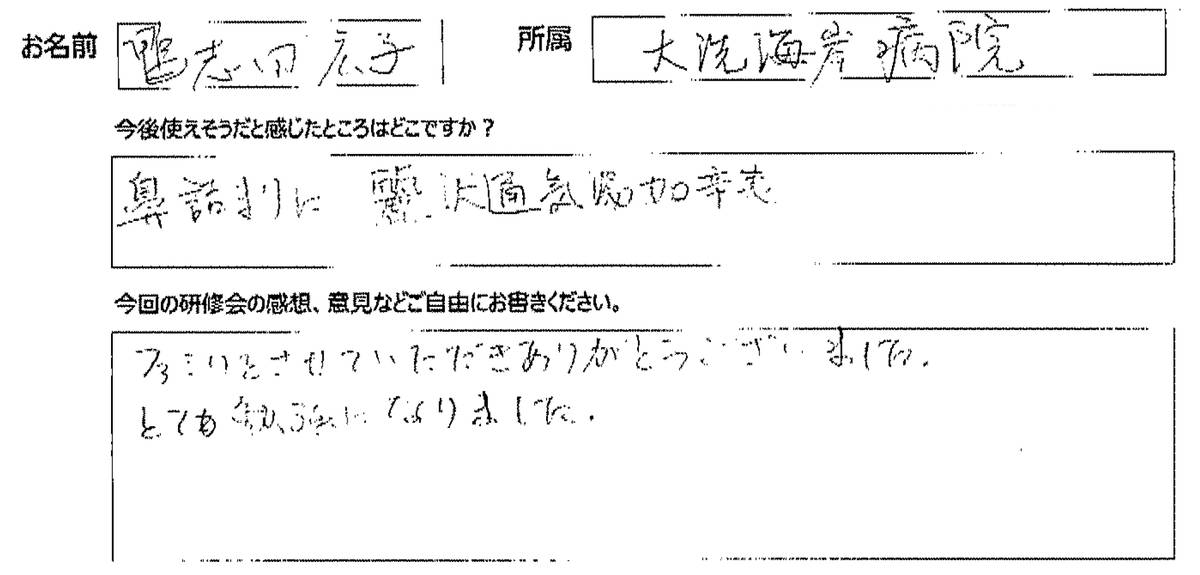 お名前 鴨志田 広子 所属 大洗海岸病院
今後使えそうだと感じたところはどこですか？
鼻詰まりに 麗沢通気湯加辛夷
今回の研修会の感想、意見などご自由にお書きください。
させていただきありがとうございました.
とても勉強になりました.